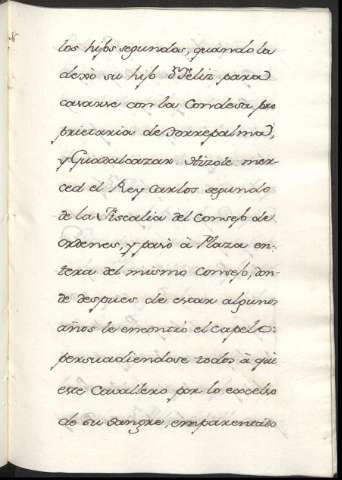 los hijos segundos, quando la
dexò su hijo Dⁿ Felix para
casarse con la Condesa pro
prietaria de Torrepalma,
y Guadalcazar. Hizole mer-
ced el Rey Carlos segundo
de la Fiscalia del Consejo de
Ordenes, y pasò à Plaza en-
tera del mismo Consejo, don-
de despues de estar algunos
años le encontrò el Capelo:
persuadiendose todos à que
este Cavallero por lo excelso
de su Sangre, emparentado